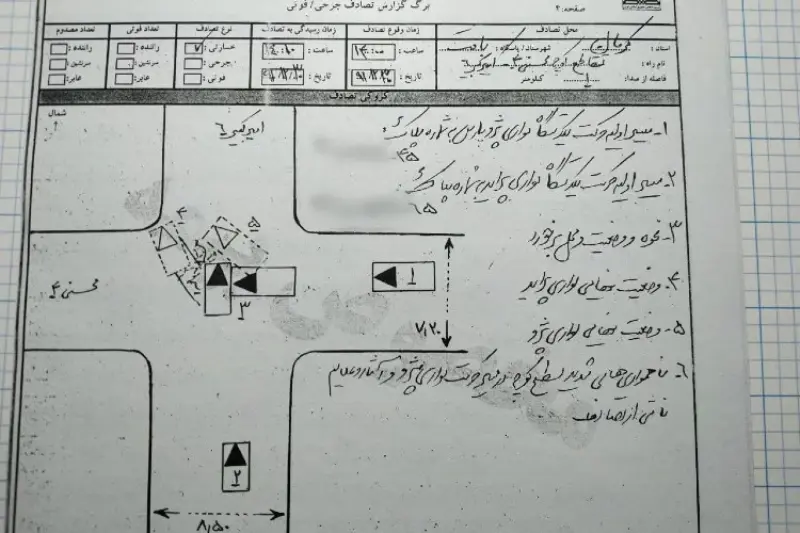 صفحه: ۲
برگ گزارش تصادف جرحی/ فوتی
محل تصادف
زمان وقوع تصادف
زمان رسیدگی به تصادف
نوع تصادف
تعداد فوتی
تعداد مصدوم
استان: کرمان شهرستان/ پاسگاه:
ساعت: ۱۴:۰۰
ساعت: ۱۴:۱۰
خسارتی:
راننده:
راننده:
نام راه:
جرحی:
سرنشین:
سرنشین:
فاصله از مبدا: کیلومتر
تاریخ:
تاریخ:
فوتی:
عابر:
عابر:
کروکی تصادف
شمال
امیرکبیر ۶
۱- مسیر اولیه حرکت یکدستگاه سواری پژو پارس بشماره پلاک:
۴۵
۲- مسیر اولیه حرکت یکدستگاه سواری پراید بشماره پلاک:
۶۵
۳- نحوه و وضعیت و محل برخورد
۴- وضعیت نهایی سواری پراید
۵- وضعیت نهایی سواری پژو
۶- ناهمواری هایی شدید سطح کوچه در مسیر حرکت سواری پژو و آثار و علایم
ناشی از تصادف
محسنی ۴
۴
۵
۳
۱
۷,۲۰
۲
۸,۵۰